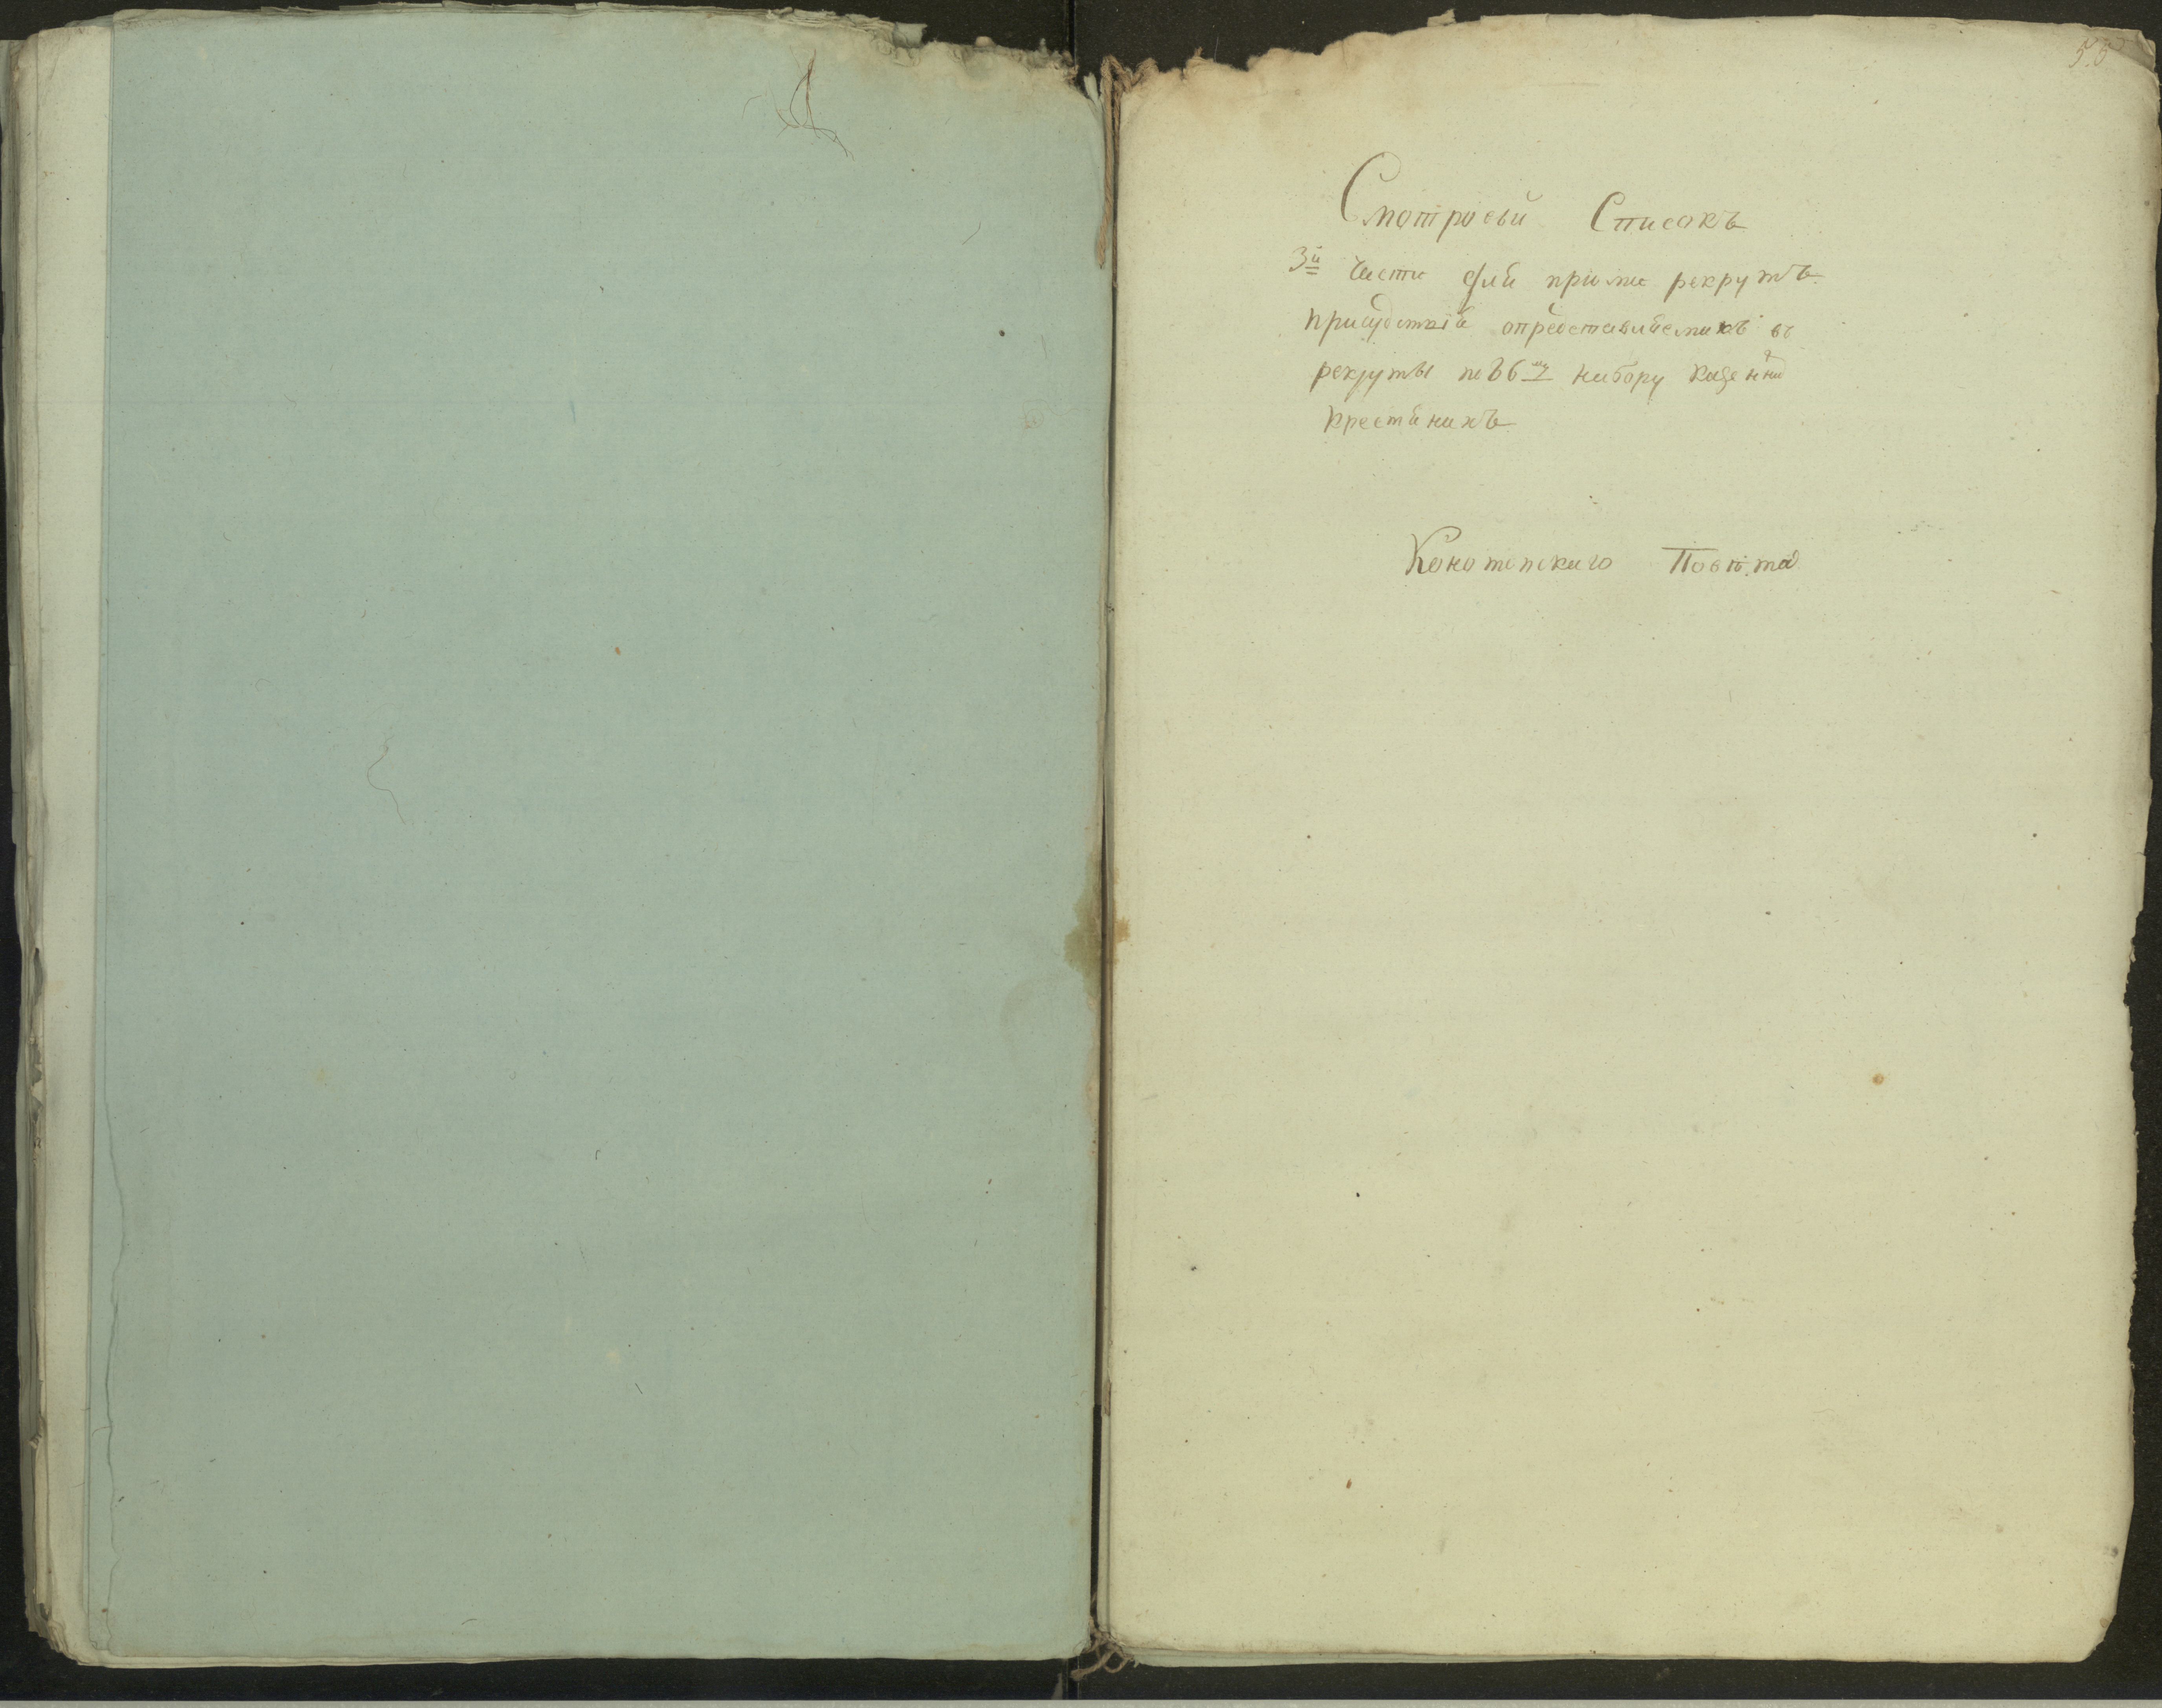 55
Смотровій Списокъ
3й Части для приѣма рекрутъ
присудствія опредставляемихъ въ
рекруты по 86му набору казенни
крестянихъ
Конотопскаго Повѣта